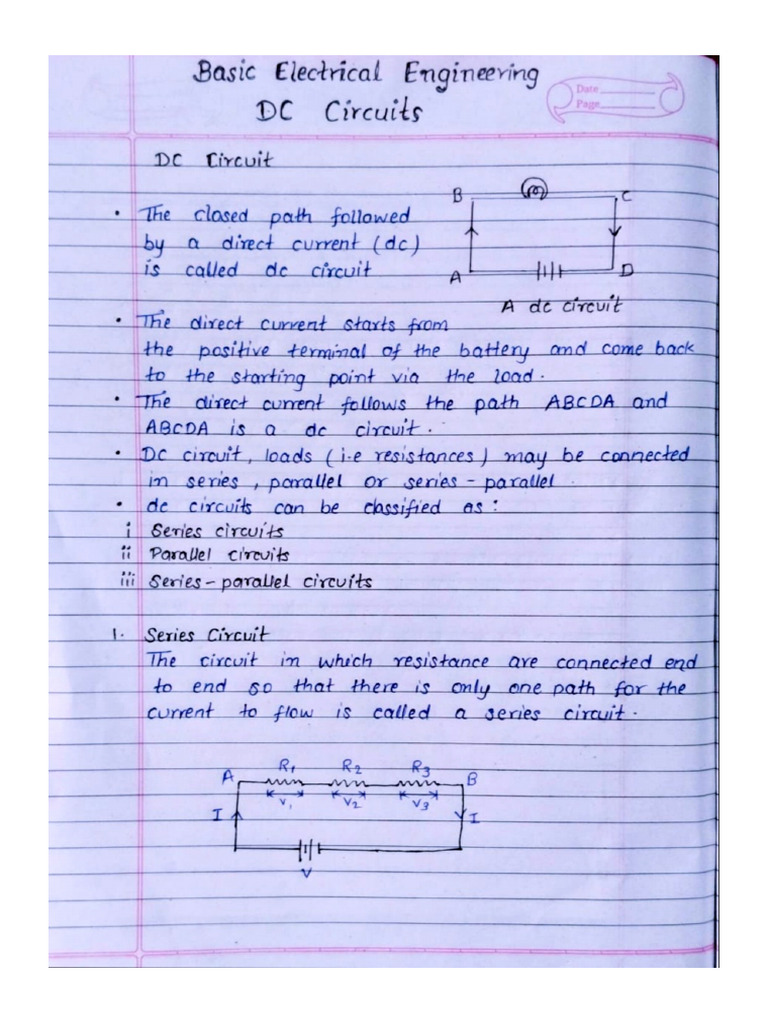 Basic Electrical Engineering
DC Circuits
Date
Page
DC Circuit
• The closed path followed
by a direct current (dc)
is called dc circuit
B C
A D
A dc circuit
• The direct current starts from
the positive terminal of the battery and come back
to the starting point via the load.
• The direct current follows the path ABCDA and
ABCDA is a dc circuit.
• DC circuit, loads (i.e resistances) may be connected
in series, parallel or series - parallel.
• dc circuits can be classified as:
i Series circuits
ii Parallel circuits
iii Series - parallel circuits
1. Series Circuit
The circuit in which resistance are connected end
to end so that there is only one path for the
current to flow is called a series circuit.
A R1 R2 R3 B
V1 V2 V3
I I
V